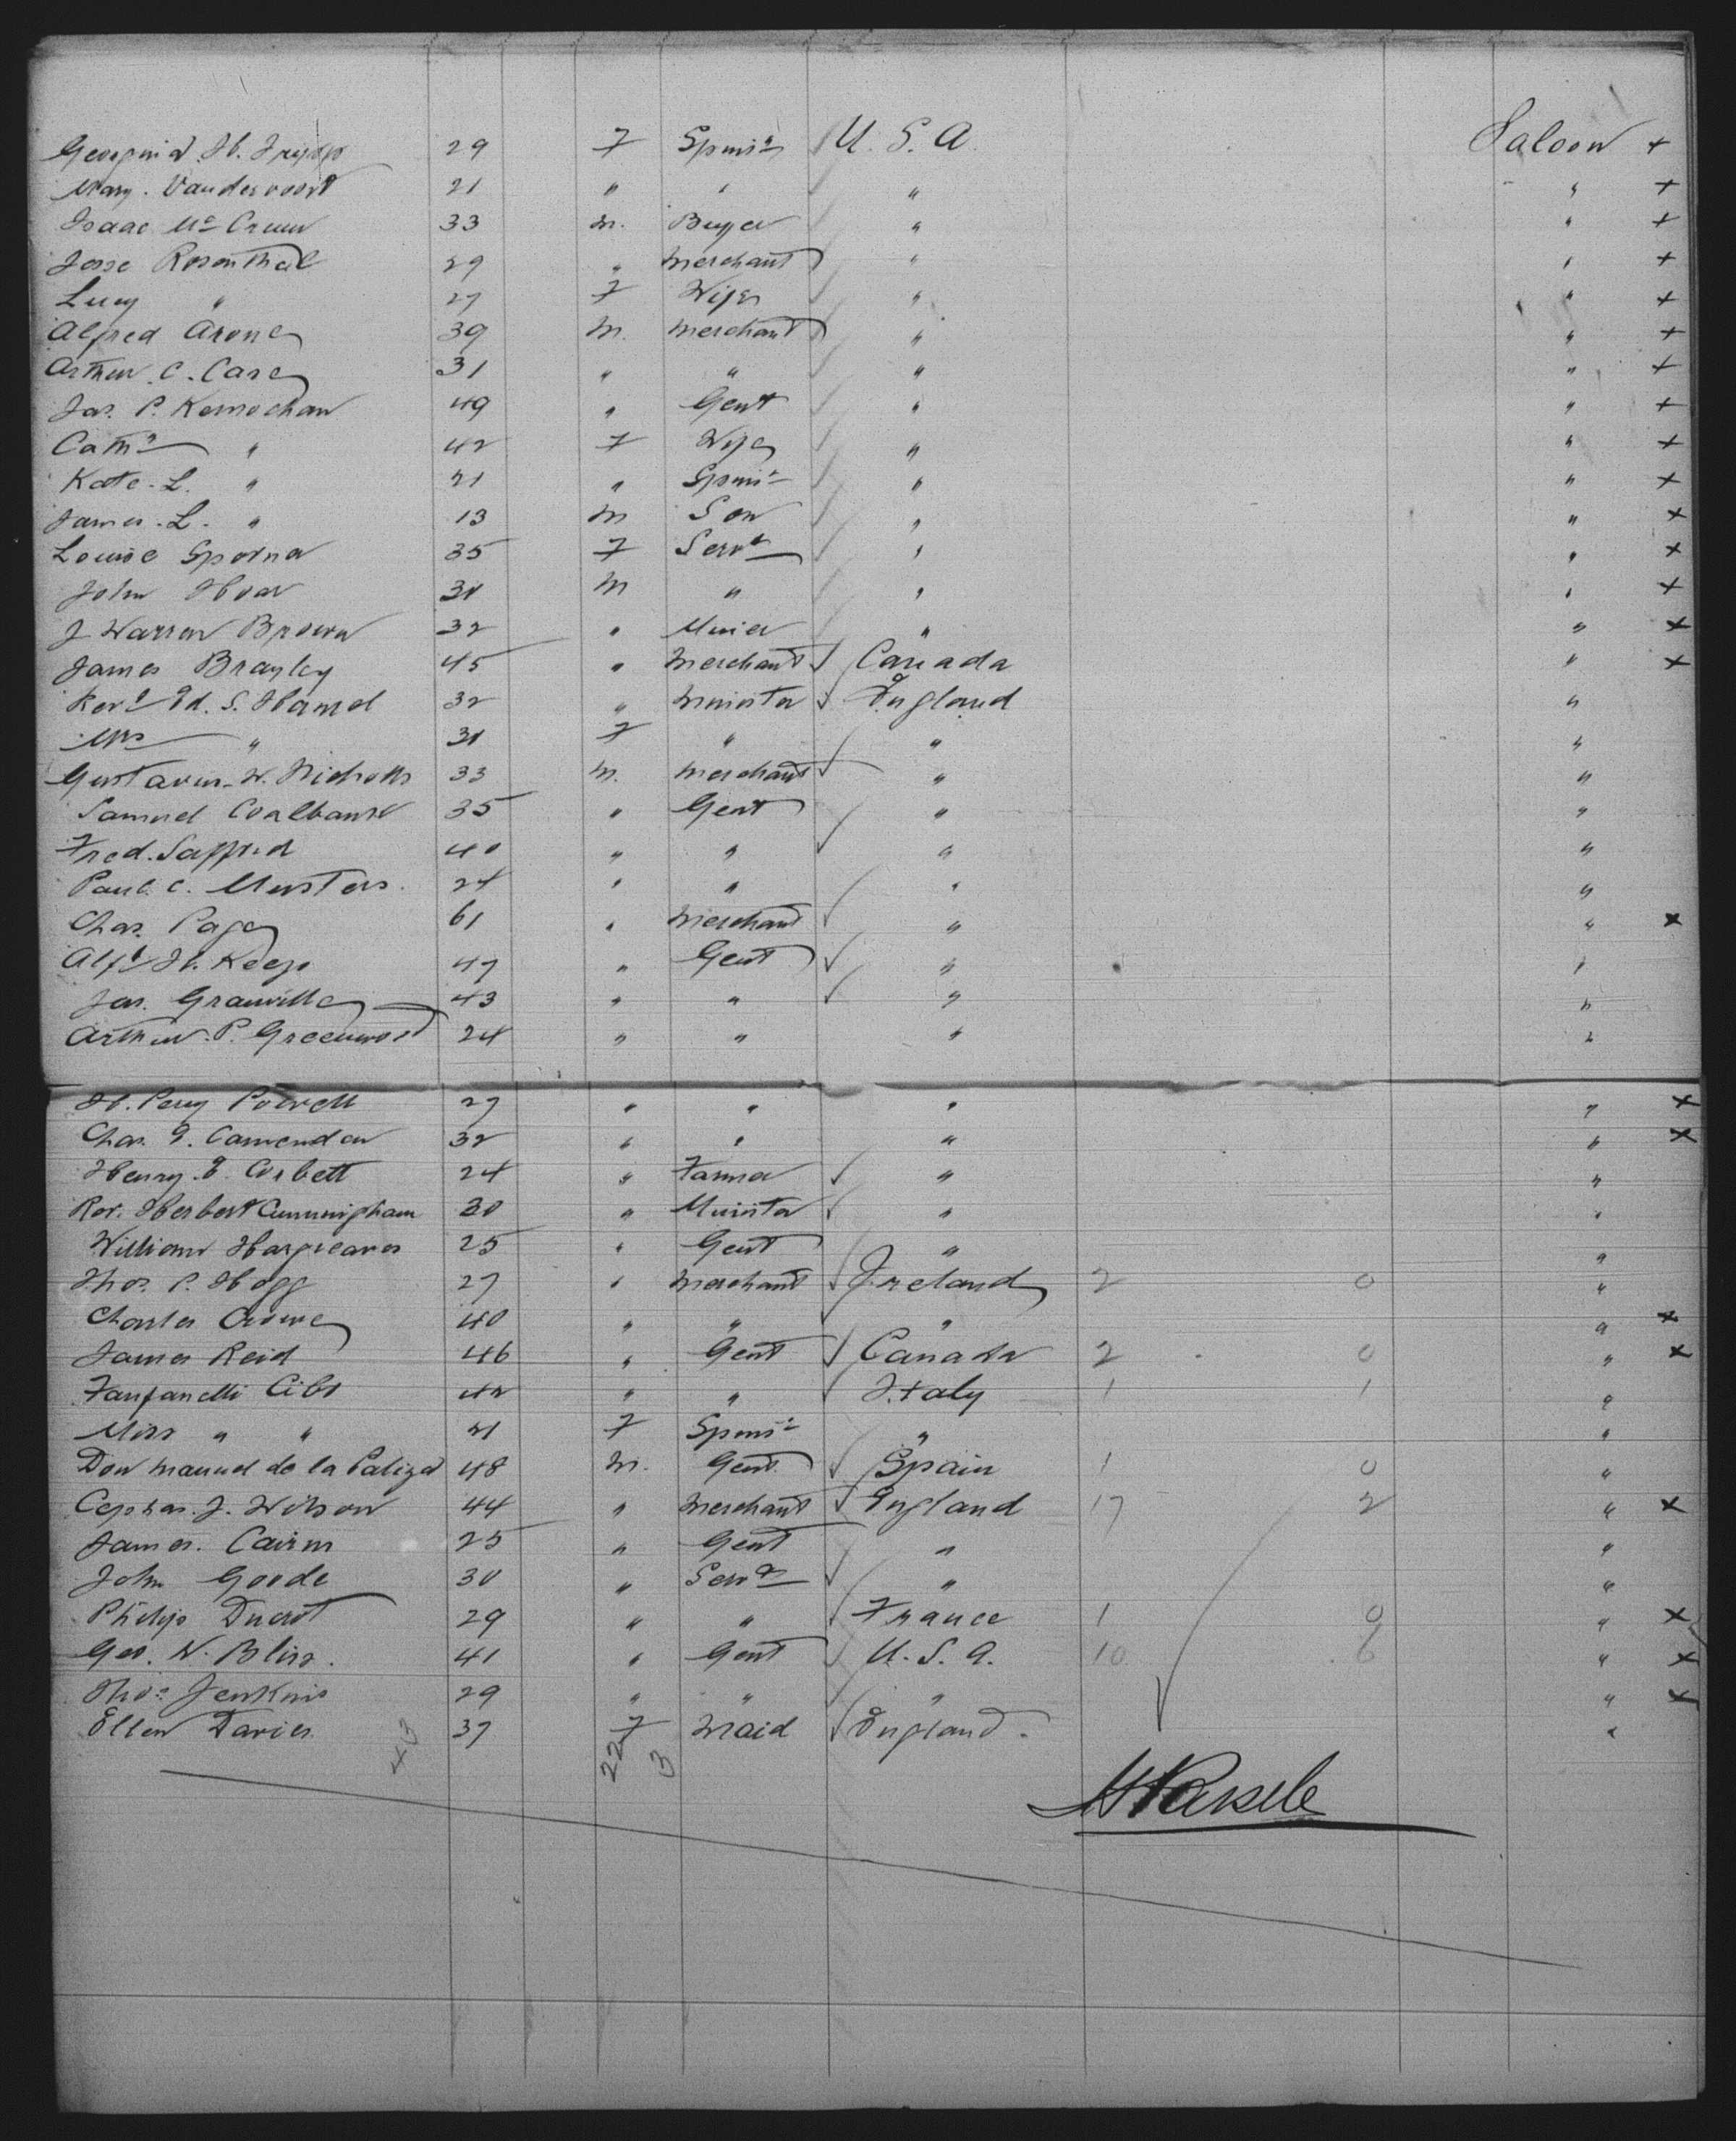 29 F Spinsr U. S. A. Saloon +
Mary. Vandervoort 21 " " " " +
Isaac Mc 33 M. Buyer " " +
Jesse Rosenthal 29 " Merchant " " +
Lucy " 27 F Wife " " +
Alfred Arone 39 M. Merchant " " +
Arthur C. Case 31 " " " " +
Jas. P. Kernochan 49 " Gent " " +
Cathe " 42 F Wife " " +
Kate. L. " 21 " Spinsr " " +
James. L. " 13 M Son " " +
Louise 35 F Servt " " +
John Hoar 30 M " " " +
J Warren Brown 32 " " " +
James Brayley 45 " Merchant Canada " +
Revd Ed. S. Hamel 32 " Minister England "
Mrs " 30 F " " "
Gustavus. W. Nicholls 33 M. Merchant " "
Samuel Coalbank 35 " Gent " "
Fred. Safford 40 " " " "
Paul. C. Musters. 24 " " " "
Chas. Page 61 " Merchant " " x
Alfd H. Keep 47 " Gent " "
Jas. Granville 43 " " " "
Arthur. P. Greenwood 24 " " " "
H. Percy Powell 27 " " " " x
Chas. E. 32 " " " " x
Henry. E. Corbett 24 " Farmer " "
Rev. Herbert Cunningham 30 " Minister " "
William Hargreaves 25 " Gent " "
Thos. P. Hogg 27 " Merchant Ireland 2 0 "
Charles Crowe 40 " " " " x
James Reid 46 " Gent Canada 2 0 " x
Fanfanelli Cibo 42 " " Italy 1 1 "
Miss " " 21 F Spinsr " "
Don Manuel de la 48 M. Gent. Spain 1 0 "
Cephas. J. Wilson 44 " Merchant England 17 2 " x
James. Cairns 25 " Gent " "
John Goode 30 " Servt " "
Philip Ducrot 29 " " France 1 0 " x
Geo. W. Bliss. 41 " Gent U. S. A. 10 6 " x
Thos Jenkins 29 " " " " x
Ellen Davies 37 F Maid England. "
43 22 3